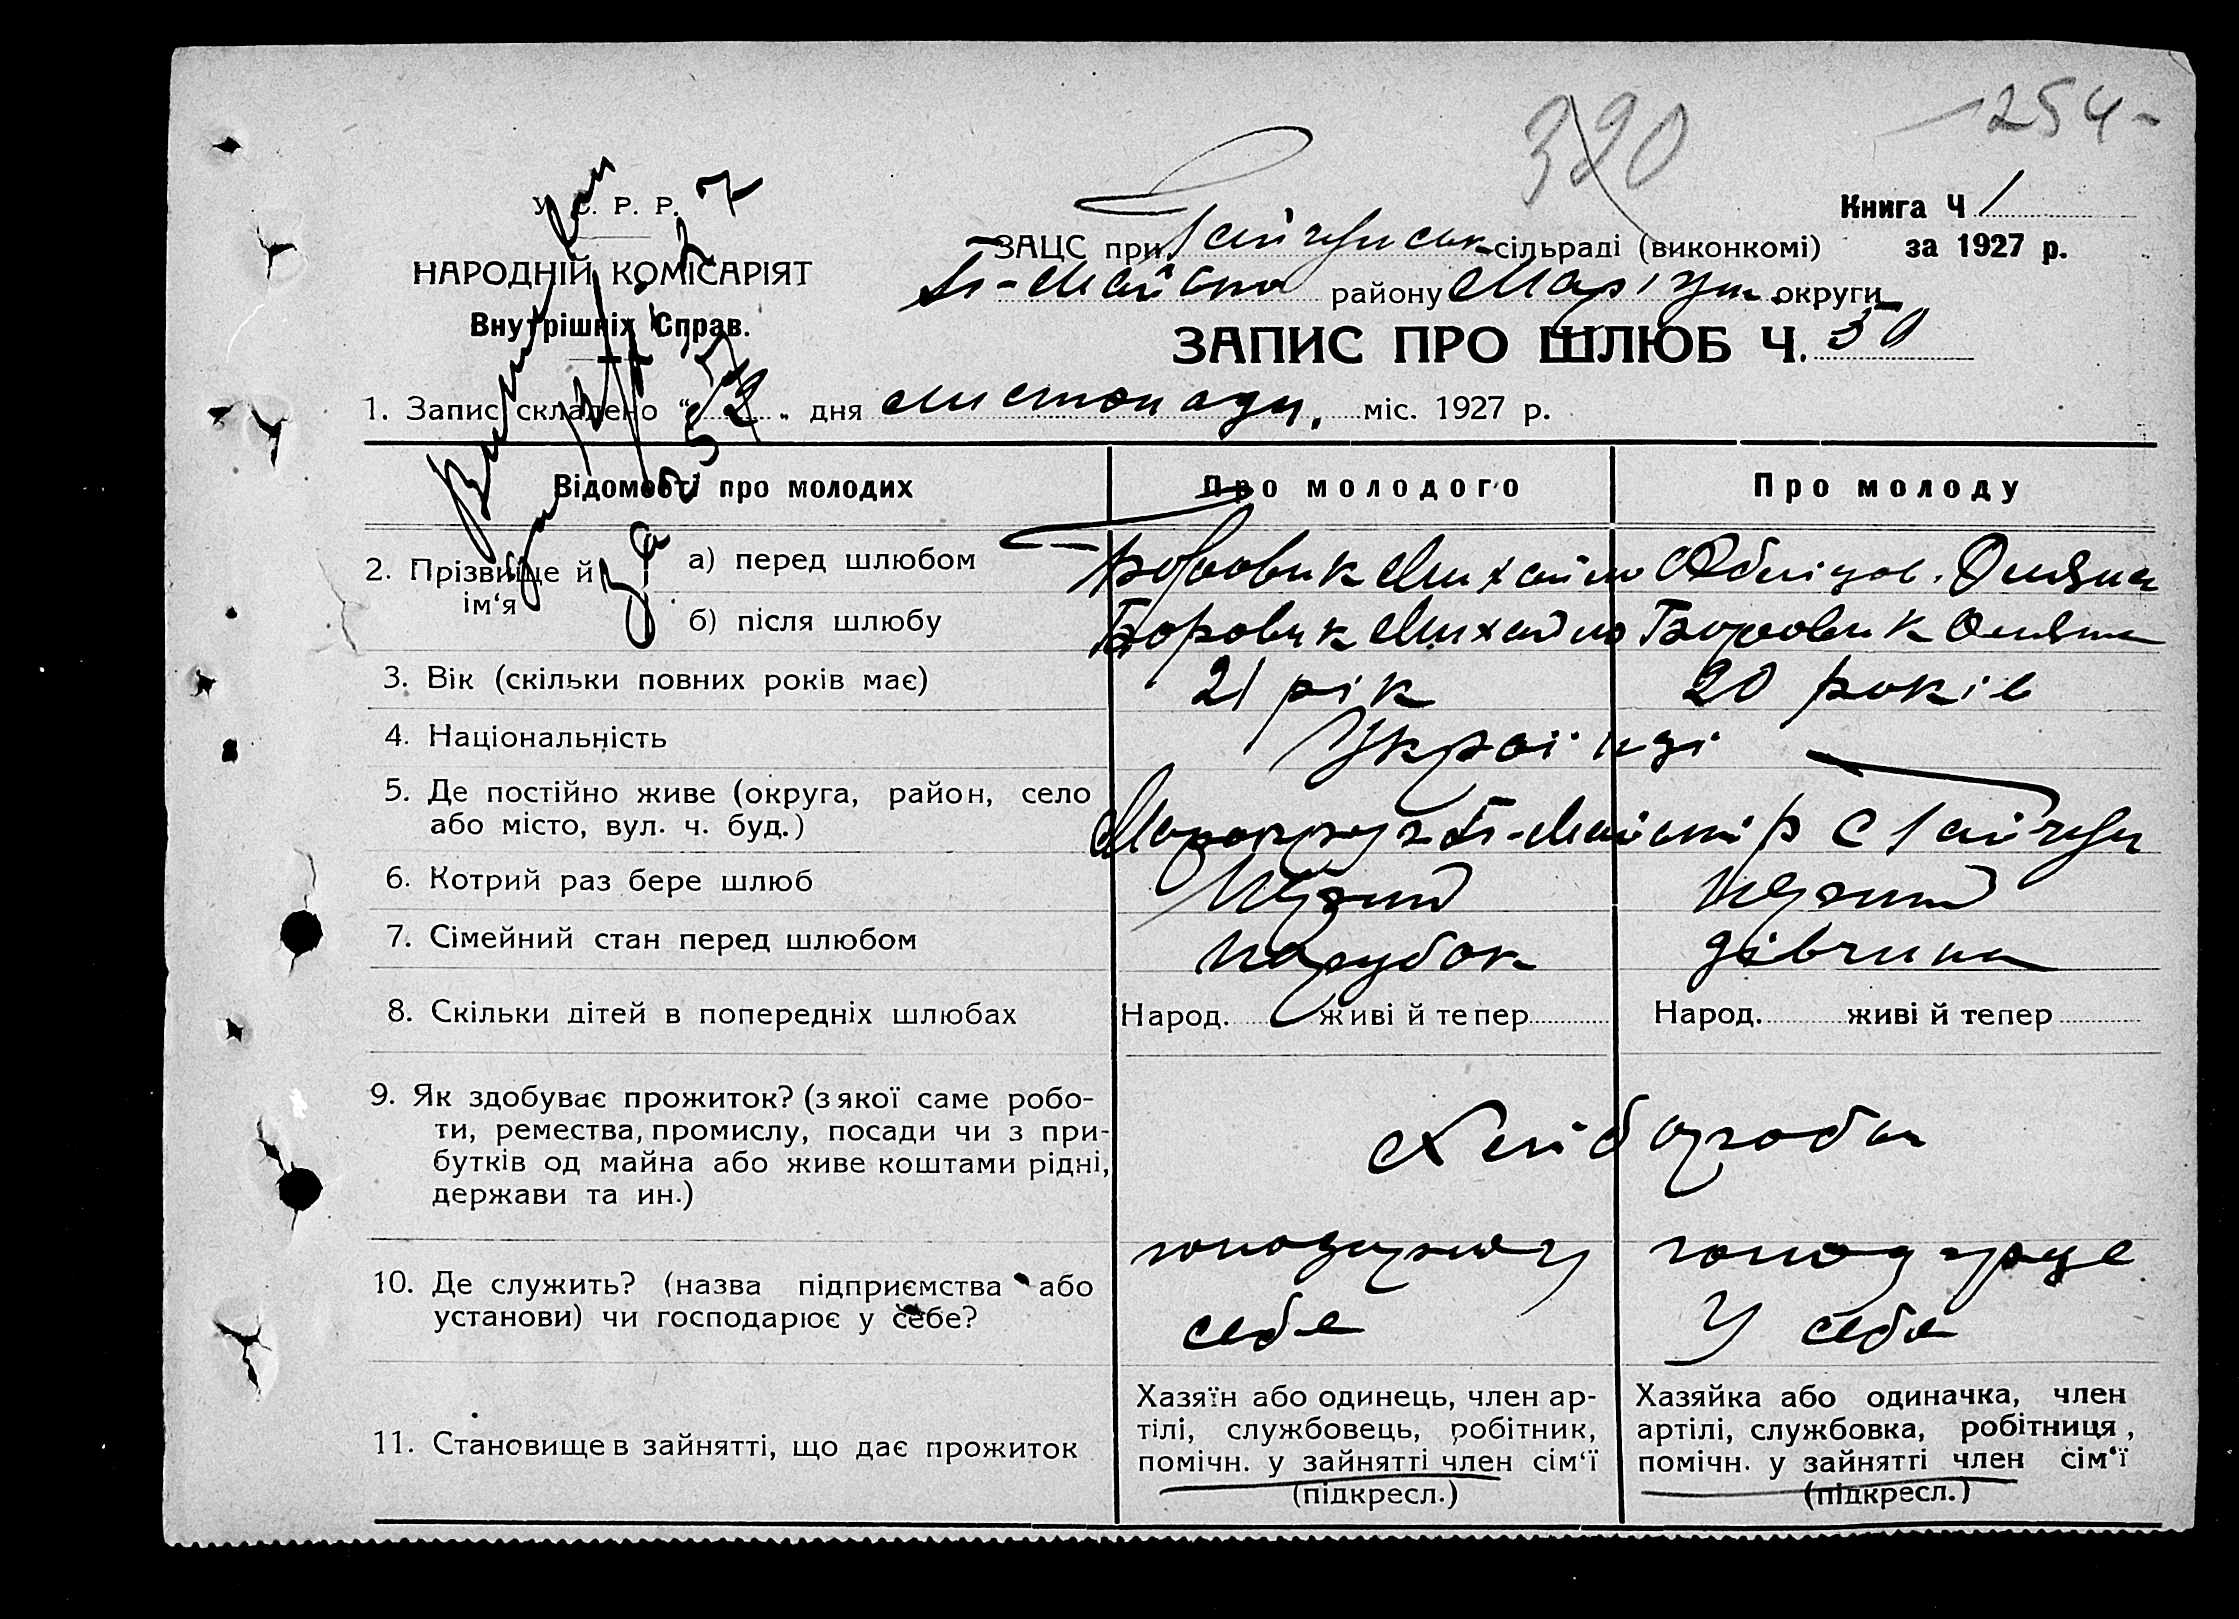 390
254
У. С. Р. Р.
НАРОДНІЙ КОМІСАРІЯТ
Внутрішніх Справ.
Книга Ч 1
за 1927 р.
ЗАЦС при Гайчунськ. сільраді (виконкомі)
району Маріуп. округи
ЗАПИС ПРО ШЛЮБ Ч. 50
1. Запис складено " " дня листопада міс. 1927 р.
Відомості про молодих
Про молодого
Про молоду
2. Прізвище й ім‘я
а) перед шлюбом
Боровик Михайло
б) після шлюбу
Боровик Михайло
Боровик
3. Вік (скільки повних років має)
21 рік
20 років
4. Національність
Українці
5. Де постійно живе (округа, район, село
або місто, вул. ч. буд.)
с Гайчун
6. Котрий раз бере шлюб
Перший
Перший
7. Сімейний стан перед шлюбом
парубок
дівчина
8. Скільки дітей в попередніх шлюбах
Народ. живі й тепер
Народ. живі й тепер
9. Як здобуває прожиток? (з якої саме робо-
ти, ремества, промислу, посади чи з при-
бутків од майна або живе коштами рідні,
держави та ин.)
Хліборобст
10. Де служить? (назва підприємства або
установи) чи господарює у себе?
себе
У себе
11. Становище в зайнятті, що дає прожиток
Хазяїн або одинець, член ар-
тілі, службовець, робітник,
помічн. у зайнятті член сім‘ї
(підкресл.)
Хазяйка або одиначка, член
артілі, службовка, робітниця,
помічн. у зайнятті член сім‘ї
(підкресл.)